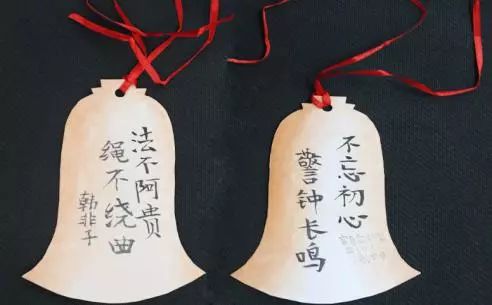 法不阿贵
绳不绕曲
韩非子
不忘初心
警钟长鸣